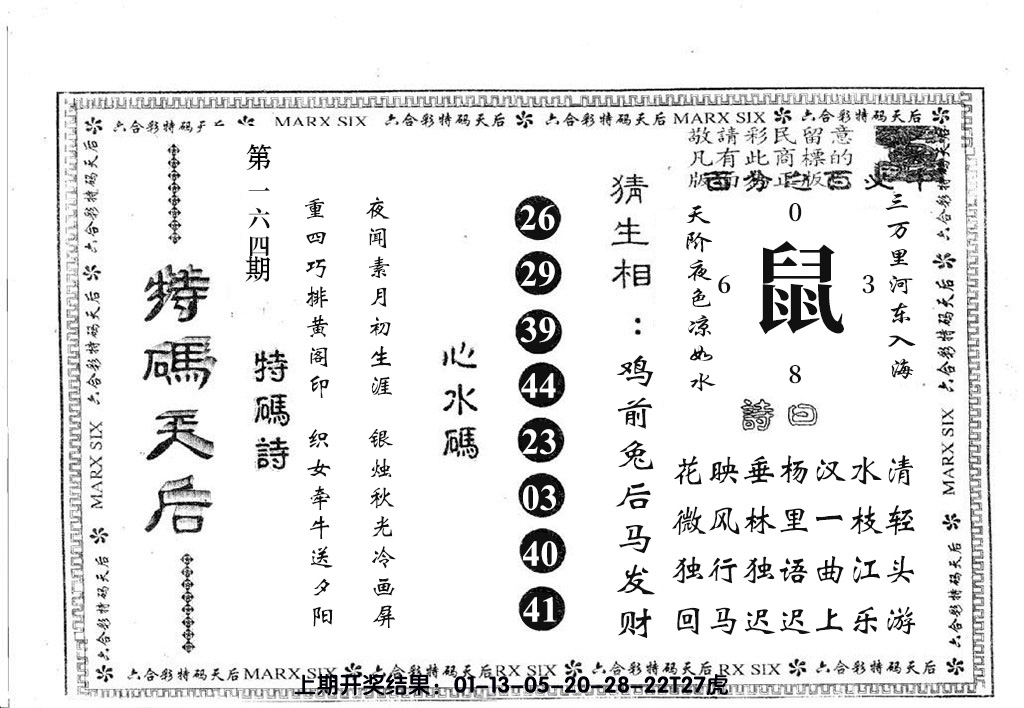 六合彩特码天后 MARX SIX 六合彩特码天后 六合彩特码天后 MARX SIX 六合彩特码天后
敬請彩民留意
凡有此商標的
版面为正版
三万里河东入海
天阶夜色凉如水
0
6
鼠
3
8
詩曰
清轻头游
水枝江乐
汉一曲上
杨里语迟
垂林独迟
映风行马
花微独回
猜生相：鸡前兔后马发财
26
29
39
44
23
03
40
41
心水碼
夜闻素月初生涯 银烛秋光冷画屏
重四巧排黄阁印 织女牵牛送夕阳
特碼詩
第一六四期
特碼天后
六合彩特码天后 MARX SIX 六合彩特码天后 六合彩特码天后
六合彩特码天后 六合彩特码天后 MARX SIX 六合彩特码天后
六合彩特码天后MARX SIX 六合彩特码天后RX SIX 六合彩特码天后RX SIX 六合彩特码天后
上期开奖结果：01-13-05-20-28-22T27虎